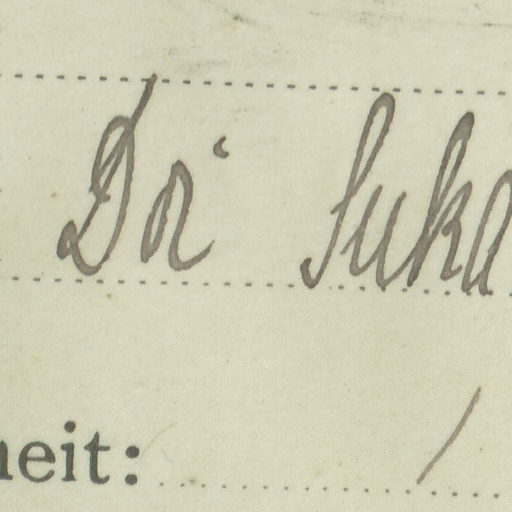 Dr. Suka
heit: